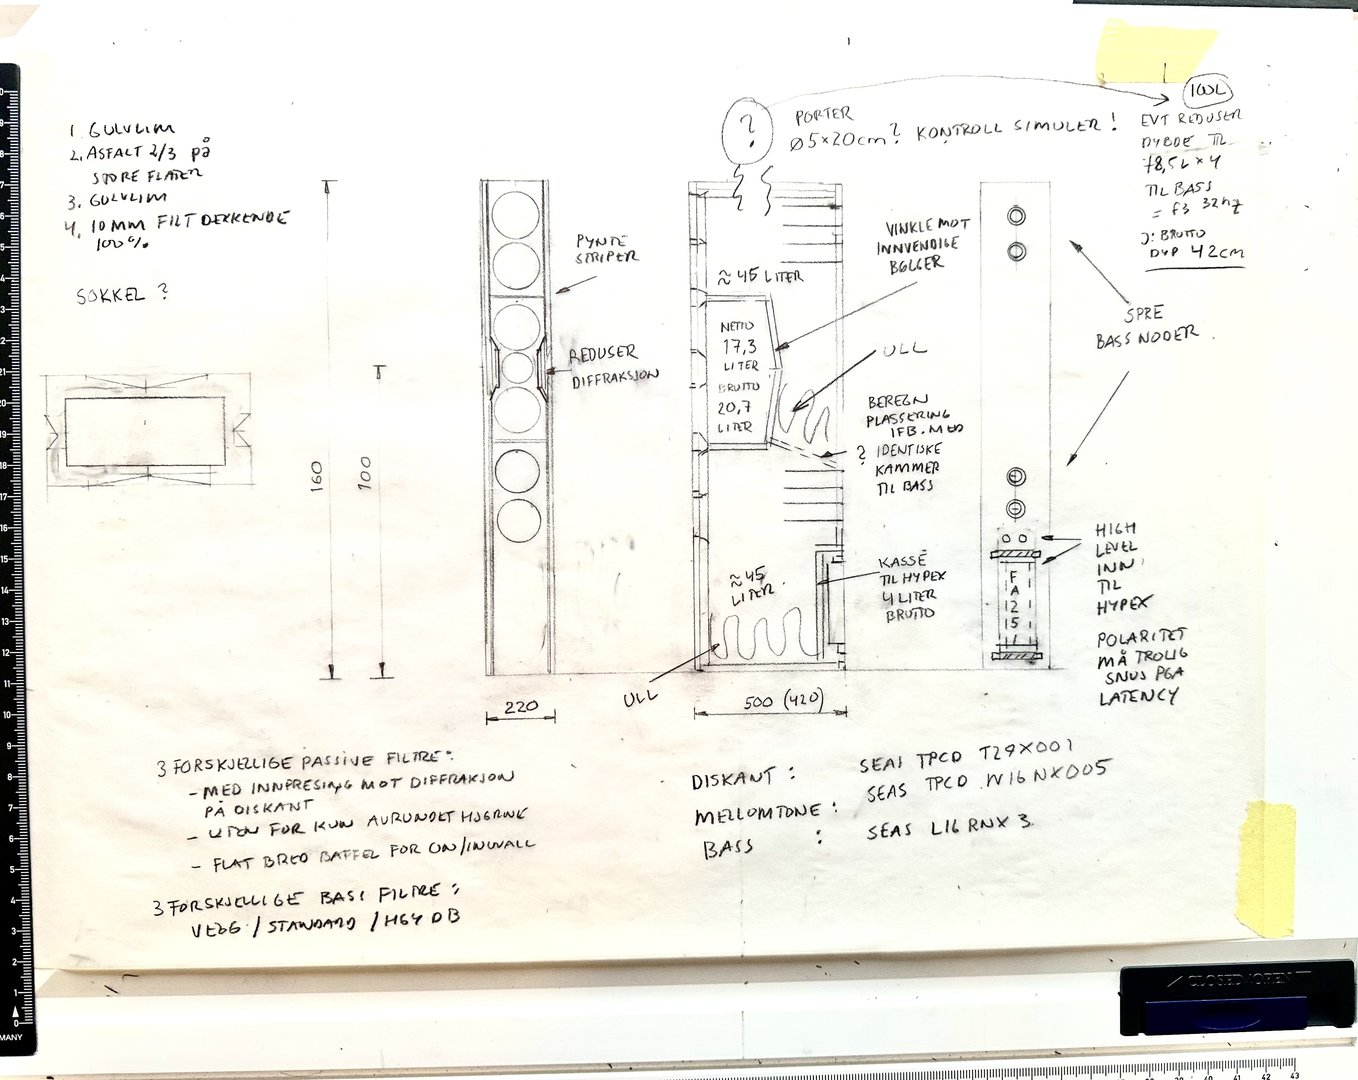 1. GULVLIM
2. ASFALT 2/3 på
STORE FLATER
3. GULVLIM
4. 10 MM FILT DEKKENDE
100%
SOKKEL ?
160
100
PYNTE
STRIPER
REDUSER
DIFFRAKSJON
220
?
PORTER
Ø5x20cm? KONTROLL SIMULER!
≈ 45 LITER
NETTO
17,3
LITER
BRUTTO
20,7
LITER
VINKLE MOT
INNVENDIGE
BØLGER
ULL
BEREGN
PLASSERING
IFB. MED
? IDENTISKE
KAMMER
TIL BASS
≈45
LITER
KASSE
TIL HYPEX
4 LITER
BRUTTO
ULL
500 (420)
100L
EVT REDUSER
DYBDE TIL
78,5L x 4
TIL BASS
= f3 32hz
BRUTTO
DYP 42cm
SPRE
BASS NODER
HIGH
LEVEL
INN
TIL
HYPEX
FA
POLARITET
MÅ TROLIG
SNUS PGA
LATENCY
3 FORSKJELLIGE PASSIVE FILTRE:
- MED INNFRESING MOT DIFFRAKSJON
PÅ DISKANT
- UTEN FOR KUN AVRUNDET HJØRNE
- FLAT BRED BAFFEL FOR ON/INWALL
3 FORSKJELLIGE BASS FILTRE:
VEGG / STANDARD / HØY DB
DISKANT : SEAS TPCD T29X001
MELLOMTONE : SEAS TPCD W16NX005
BASS : SEAS L16RNX3
CLOSED OPEN
MANY